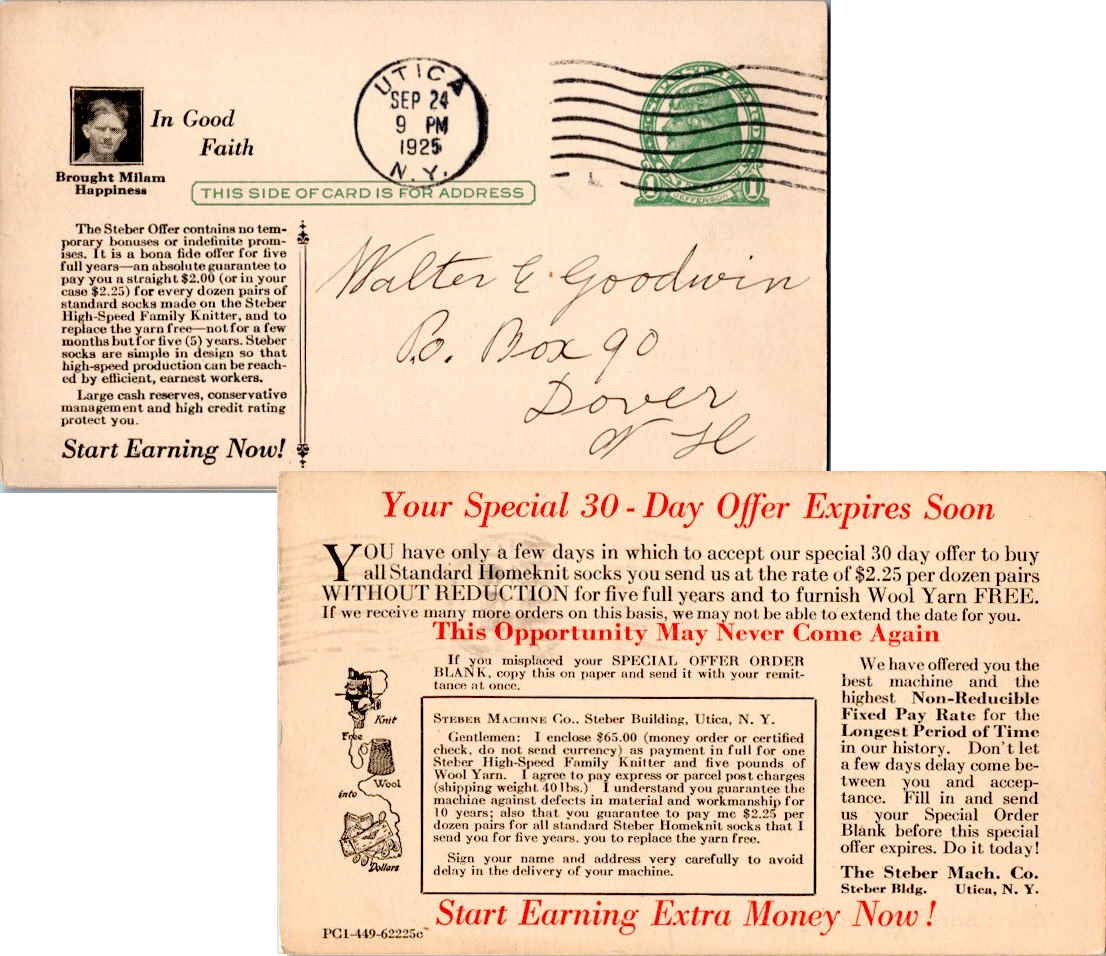 In Good
Faith
Brought Milam
Happiness
UTICA
SEP 24
9 PM
1925
N.Y.
THIS SIDE OF CARD IS FOR ADDRESS
1 JEFFERSON 1
The Steber Offer contains no tem-
porary bonuses or indefinite prom-
ises. It is a bona fide offer for five
full years—an absolute guarantee to
pay you a straight $2.00 (or in your
case $2.25) for every dozen pairs of
standard socks made on the Steber
High-Speed Family Knitter, and to
replace the yarn free—not for a few
months but for five (5) years. Steber
socks are simple in design so that
high-speed production can be reach-
ed by efficient, earnest workers.
Large cash reserves, conservative
management and high credit rating
protect you.
Start Earning Now!
Walter E. Goodwin
P.o. Box 90
Dover
N H
Your Special 30-Day Offer Expires Soon
YOU have only a few days in which to accept our special 30 day offer to buy
all Standard Homeknit socks you send us at the rate of $2.25 per dozen pairs
WITHOUT REDUCTION for five full years and to furnish Wool Yarn FREE.
If we receive many more orders on this basis, we may not be able to extend the date for you.
This Opportunity May Never Come Again
Knit
Free
Wool
into
Dollars
If you misplaced your SPECIAL OFFER ORDER
BLANK, copy this on paper and send it with your remit-
tance at once.
STEBER MACHINE CO., Steber Building, Utica, N. Y.
Gentlemen: I enclose $65.00 (money order or certified
check, do not send currency) as payment in full for one
Steber High-Speed Family Knitter and five pounds of
Wool Yarn. I agree to pay express or parcel post charges
(shipping weight 40 lbs.) I understand you guarantee the
machine against defects in material and workmanship for
10 years; also that you guarantee to pay me $2.25 per
dozen pairs for all standard Steber Homeknit socks that I
send you for five years, you to replace the yarn free.
Sign your name and address very carefully to avoid
delay in the delivery of your machine.
We have offered you the
best machine and the
highest Non-Reducible
Fixed Pay Rate for the
Longest Period of Time
in our history. Don't let
a few days delay come be-
tween you and accep-
tance. Fill in and send
us your Special Order
Blank before this special
offer expires. Do it today!
The Steber Mach. Co.
Steber Bldg. Utica, N. Y.
Start Earning Extra Money Now!
PC1-449-62225c